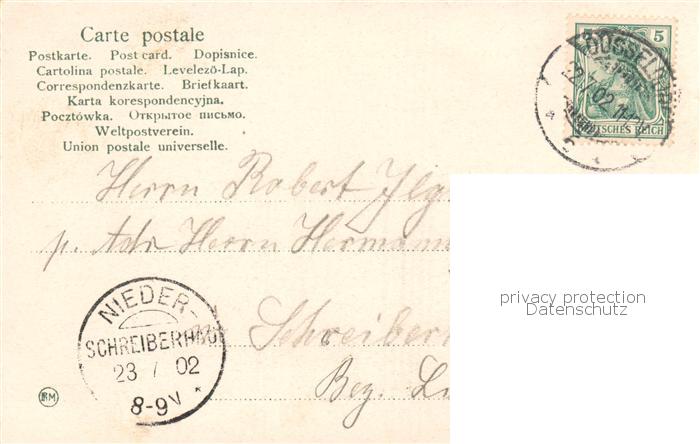 Carte postale
Postkarte. Post card. Dopisnice.
Cartolina postale. Levelező-Lap.
Correspondenzkarte. Briefkaart.
Karta korespondencyjna.
Pocztówka. Открытое письмо.
Weltpostverein.
Union postale universelle.
5
DÜSSELDORF
02
DEUTSCHES REICH
Herrn Robert Ilg
p. Adr Herrn Hermann
privacy protection
Datenschutz
NIEDER-
SCHREIBERHAU
23 7 02
8-9N
Schreiber
Bez. Li
RM